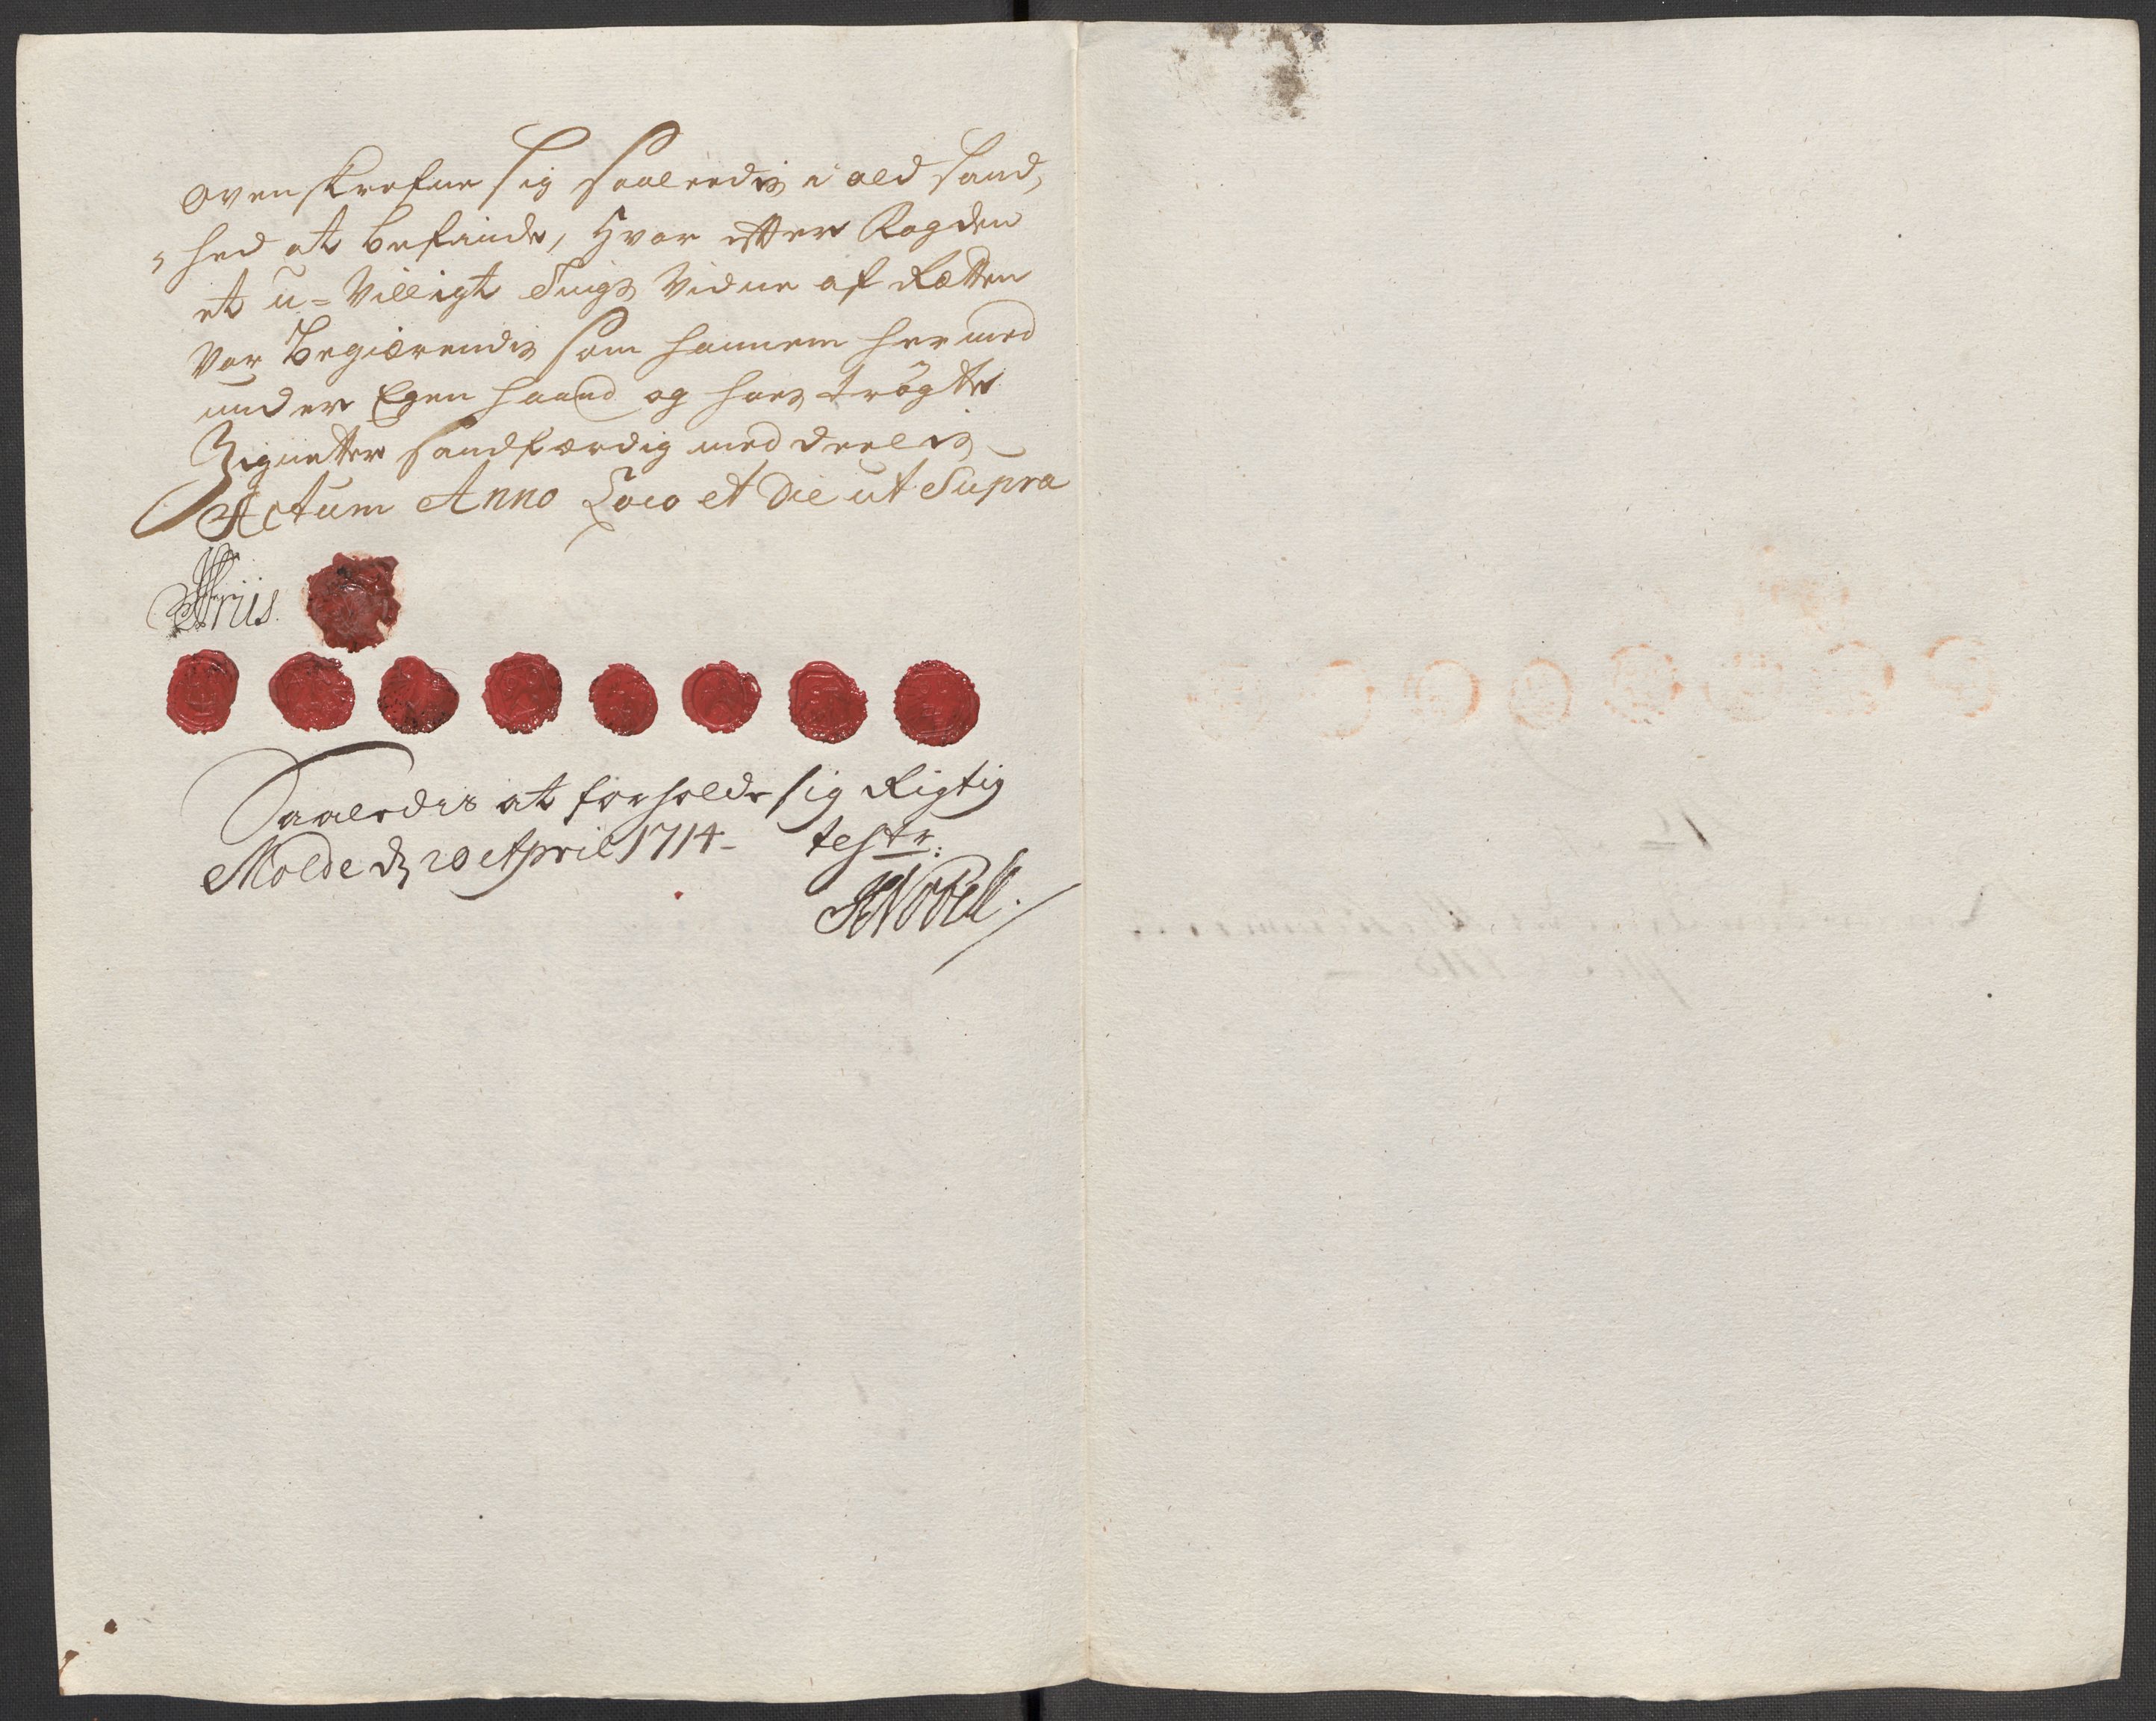 ovenskrefne sig saaleedis i ald Sand,
,hed at befinde, Hvor etter Fogden
et u=Villigt Tings Vidne af Rætten
Var Begiærendis som hannem her med
under Egen haand og hos trögte
Zignetter Sandfærdig med deelis
Actum Anno Loco et Die ut Supra
Friis
Saaledis at forholde sig Rigtig
Molde d 20 April 1714- test: